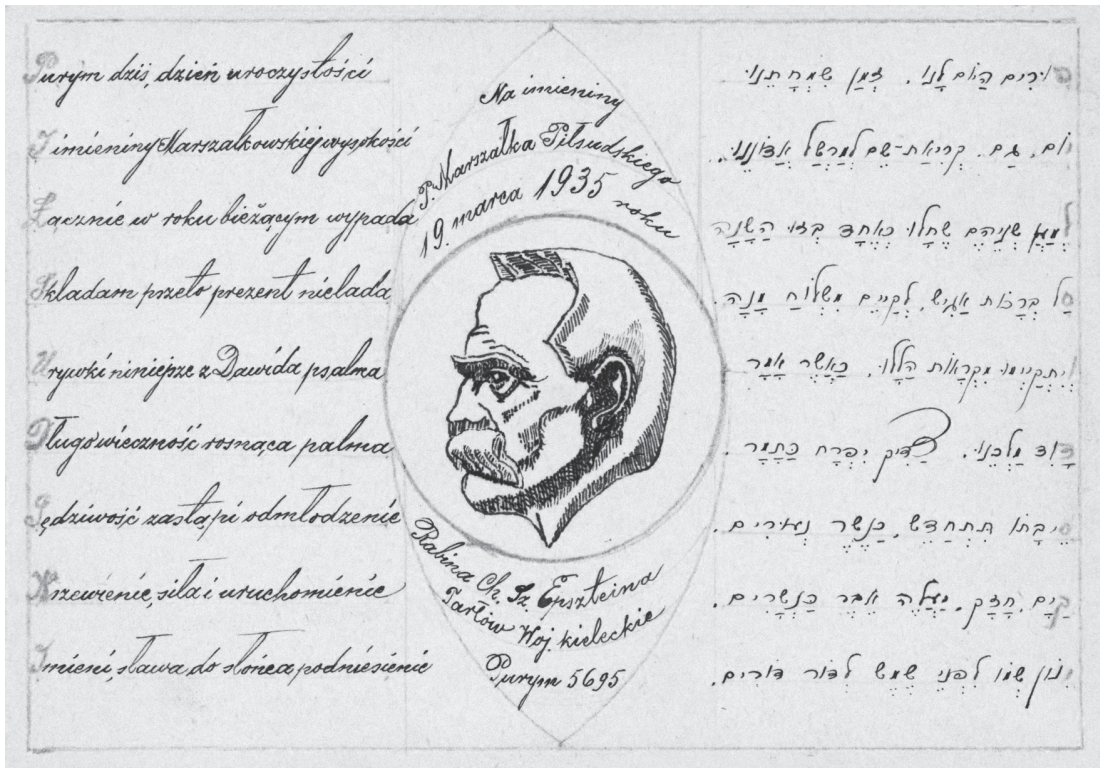 Purym dziś, dzień uroczystości
I imieniny Marszałkowskiej wysokości
Łącznie w roku bieżącym wypada
Składam przeto prezent nielada
Urywki niniejsze z Dawida psalma
Długowieczność rosnąca palma
Sędziwość zastąpi odmłodzenie
Krzewienie, siła i uruchomienie
Imieni, sława, do słońca podniesienie
Na imieniny
P. Marszałka Piłsudskiego
19. marca 1935 roku
Rabina Ch. Sz. Epszteina
Tarłów Woj. kieleckie
Purym 5695
פורים היום לנו, זמן שמחתנו.
יום, גם, קריאת-שם למרשל אדוננו.
למען שניהם שחלו כאחד בזו השנה
סל ברכות אגיש, לקיים משלוח מנה.
ויתקיימו מקראות הללו, כאשר אמר
דוד מלכנו, צדיק יפרח כתמר.
סיבתו תתחדש כנשר נעורים.
קים, חזק, יעלה אבר כנשרים.
ינון שמו לפני שמש לדור דורים.